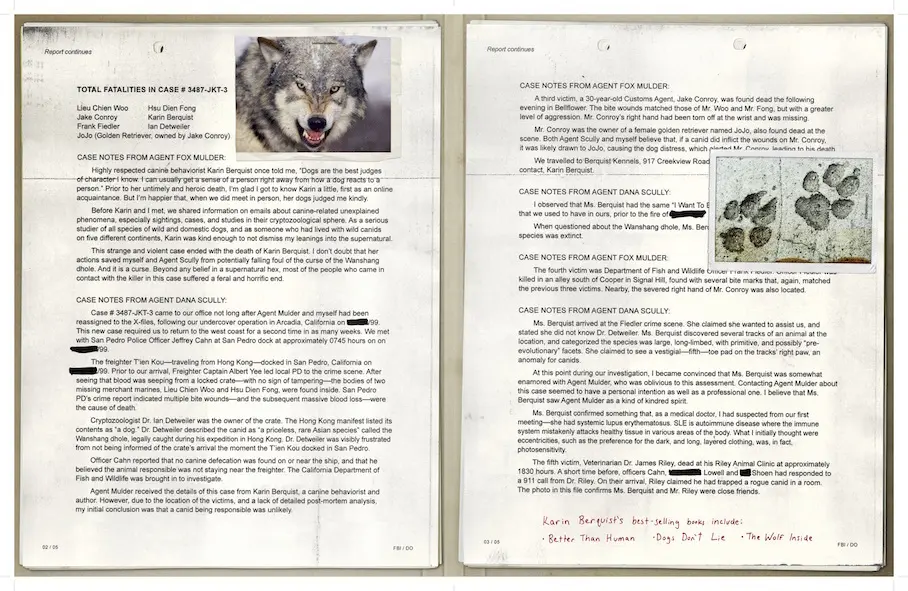 Report continues
TOTAL FATALITIES IN CASE # 3487-JKT-3
Lieu Chien Woo Hsu Dien Fong
Jake Conroy Karin Berquist
Frank Fiedler Ian Detweiler
JoJo (Golden Retriever, owned by Jake Conroy)
CASE NOTES FROM AGENT FOX MULDER:
Highly respected canine behaviorist Karin Berquist once told me, "Dogs are the best judges
of character I know. I can usually get a sense of a person right away from how a dog reacts to a
person." Prior to her untimely and heroic death, I'm glad I got to know Karin a little, first as an online
acquaintance. But I'm happier that, when we did meet in person, her dogs judged me kindly.
Before Karin and I met, we shared information on emails about canine-related unexplained
phenomena, especially sightings, cases, and studies in their cryptozoological sphere. As a serious
studier of all species of wild and domestic dogs, and as someone who had lived with wild canids
on five different continents, Karin was kind enough to not dismiss my leanings into the supernatural.
This strange and violent case ended with the death of Karin Berquist. I don't doubt that her
actions saved myself and Agent Scully from potentially falling foul of the curse of the Wanshang
dhole. And it is a curse. Beyond any belief in a supernatural hex, most of the people who came in
contact with the killer in this case suffered a feral and horrific end.
CASE NOTES FROM AGENT DANA SCULLY:
Case # 3487-JKT-3 came to our office not long after Agent Mulder and myself had been
reassigned to the X-files, following our undercover operation in Arcadia, California on /99.
This new case required us to return to the west coast for a second time in as many weeks. We met
with San Pedro Police Officer Jeffrey Cahn at San Pedro dock at approximately 0745 hours on on
/99.
The freighter T'ien Kou—traveling from Hong Kong—docked in San Pedro, California on
/99. Prior to our arrival, Freighter Captain Albert Yee led local PD to the crime scene. After
seeing that blood was seeping from a locked crate—with no sign of tampering—the bodies of two
missing merchant marines, Lieu Chien Woo and Hsu Dien Fong, were found inside. San Pedro
PD's crime report indicated multiple bite wounds—and the subsequent massive blood loss—were
the cause of death.
Cryptozoologist Dr. Ian Detweiler was the owner of the crate. The Hong Kong manifest listed its
contents as "a dog." Dr. Detweiler described the canid as "a priceless, rare Asian species" called the
Wanshang dhole, legally caught during his expedition in Hong Kong. Dr. Detweiler was visibly frustrated
from not being informed of the crate's arrival the moment the T'ien Kou docked in San Pedro.
Officer Cahn reported that no canine defecation was found on or near the ship, and that he
believed the animal responsible was not staying near the freighter. The California Department of
Fish and Wildlife was brought in to investigate.
Agent Mulder received the details of this case from Karin Berquist, a canine behaviorist and
author. However, due to the location of the victims, and a lack of detailed post-mortem analysis,
my initial conclusion was that a canid being responsible was unlikely.
02 / 05
FBI / DO
Report continues
CASE NOTES FROM AGENT FOX MULDER:
A third victim, a 30-year-old Customs Agent, Jake Conroy, was found dead the following
evening in Bellflower. The bite wounds matched those of Mr. Woo and Mr. Fong, but with a greater
level of aggression. Mr. Conroy's right hand had been torn off at the wrist and was missing.
Mr. Conroy was the owner of a female golden retriever named JoJo, also found dead at the
scene. Both Agent Scully and myself believe that, if a canid did inflict the wounds on Mr. Conroy,
it was likely drawn to JoJo, causing the dog distress, which alerted Mr. Conroy, leading to his death.
We travelled to Berquist Kennels, 917 Creekview Road
contact, Karin Berquist.
CASE NOTES FROM AGENT DANA SCULLY:
I observed that Ms. Berquist had the same "I Want To B
that we used to have in ours, prior to the fire of
When questioned about the Wanshang dhole, Ms. Ber
species was extinct.
CASE NOTES FROM AGENT FOX MULDER:
The fourth victim was Department of Fish and Wildlife Officer Frank Fiedler. Officer Fiedler was
killed in an alley south of Cooper in Signal Hill, found with several bite marks that, again, matched
the previous three victims. Nearby, the severed right hand of Mr. Conroy was also located.
CASE NOTES FROM AGENT DANA SCULLY:
Ms. Berquist arrived at the Fiedler crime scene. She claimed she wanted to assist us, and
stated she did not know Dr. Detweiler. Ms. Berquist discovered several tracks of an animal at the
location, and categorized the species was large, long-limbed, with primitive, and possibly "pre-
evolutionary" facets. She claimed to see a vestigial—fifth—toe pad on the tracks' right paw, an
anomaly for canids.
At this point during our investigation, I became convinced that Ms. Berquist was somewhat
enamored with Agent Mulder, who was oblivious to this assessment. Contacting Agent Mulder about
this case seemed to have a personal intention as well as a professional one. I believe that Ms.
Berquist saw Agent Mulder as a kind of kindred spirit.
Ms. Berquist confirmed something that, as a medical doctor, I had suspected from our first
meeting—she had systemic lupus erythematosus. SLE is autoimmune disease where the immune
system mistakenly attacks healthy tissue in various areas of the body. What I initially thought were
eccentricities, such as the preference for the dark, and long, layered clothing, was, in fact,
photosensitivity.
The fifth victim, Veterinarian Dr. James Riley, dead at his Riley Animal Clinic at approximately
1830 hours. A short time before, officers Cahn, Lowell and Shoen had responded to
a 911 call from Dr. Riley. On their arrival, Riley claimed he had trapped a rogue canid in a room.
The photo in this file confirms Ms. Berquist and Mr. Riley were close friends.
Karin Berquist's best-selling books include:
· Better Than Human · Dogs Don't Lie · The Wolf Inside
03 / 05
FBI / DO